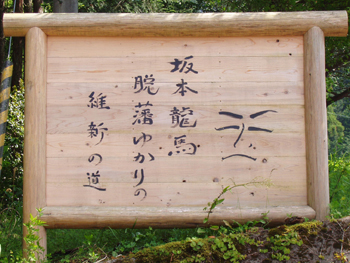 坂本龍馬
脱藩ゆかりの
維新の道